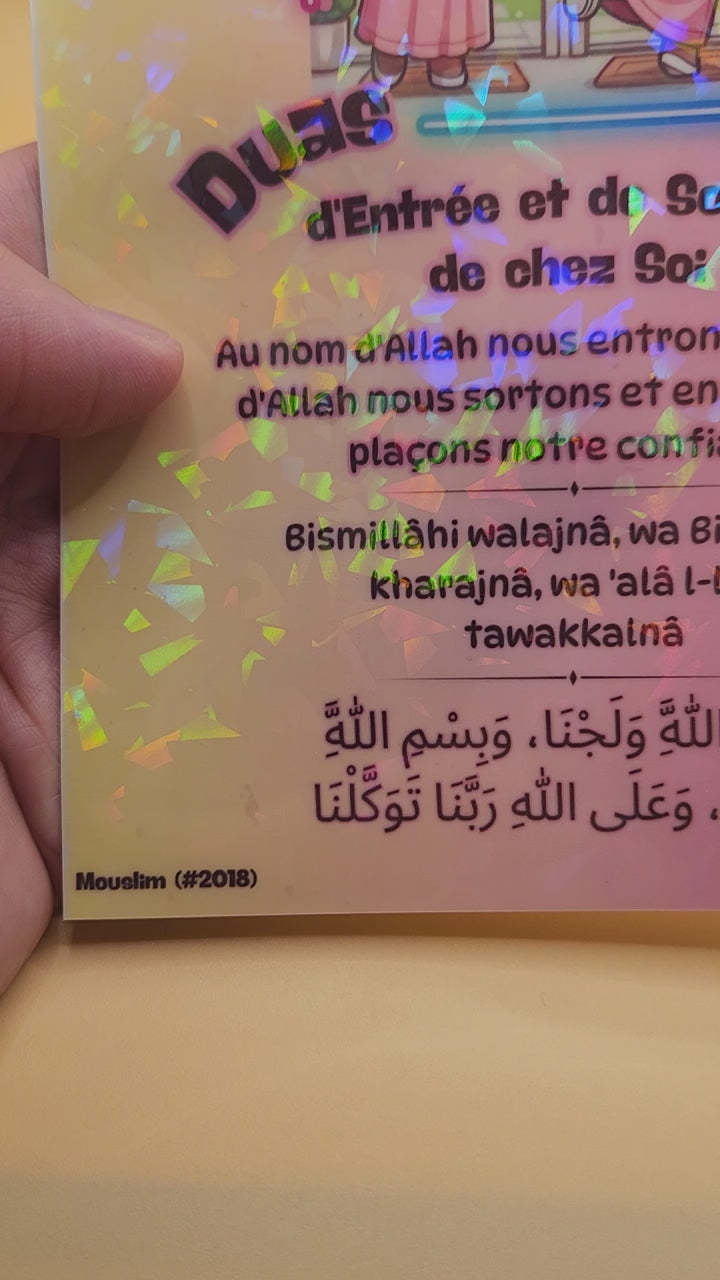 Duas
d'Entrée et de
de chez Soi
Au nom d'Allah nous
d'Allah nous sortons et
plaçons notre
Bismillâhi walajnâ, wa
kharajnâ, wa 'alâ
tawakkalnâ
وَلَجْنَا، وَبِسْمِ اللَّهِ
، وَعَلَى اللَّهِ رَبَّنَا تَوَكَّلْنَا
Mouslim (#2018)